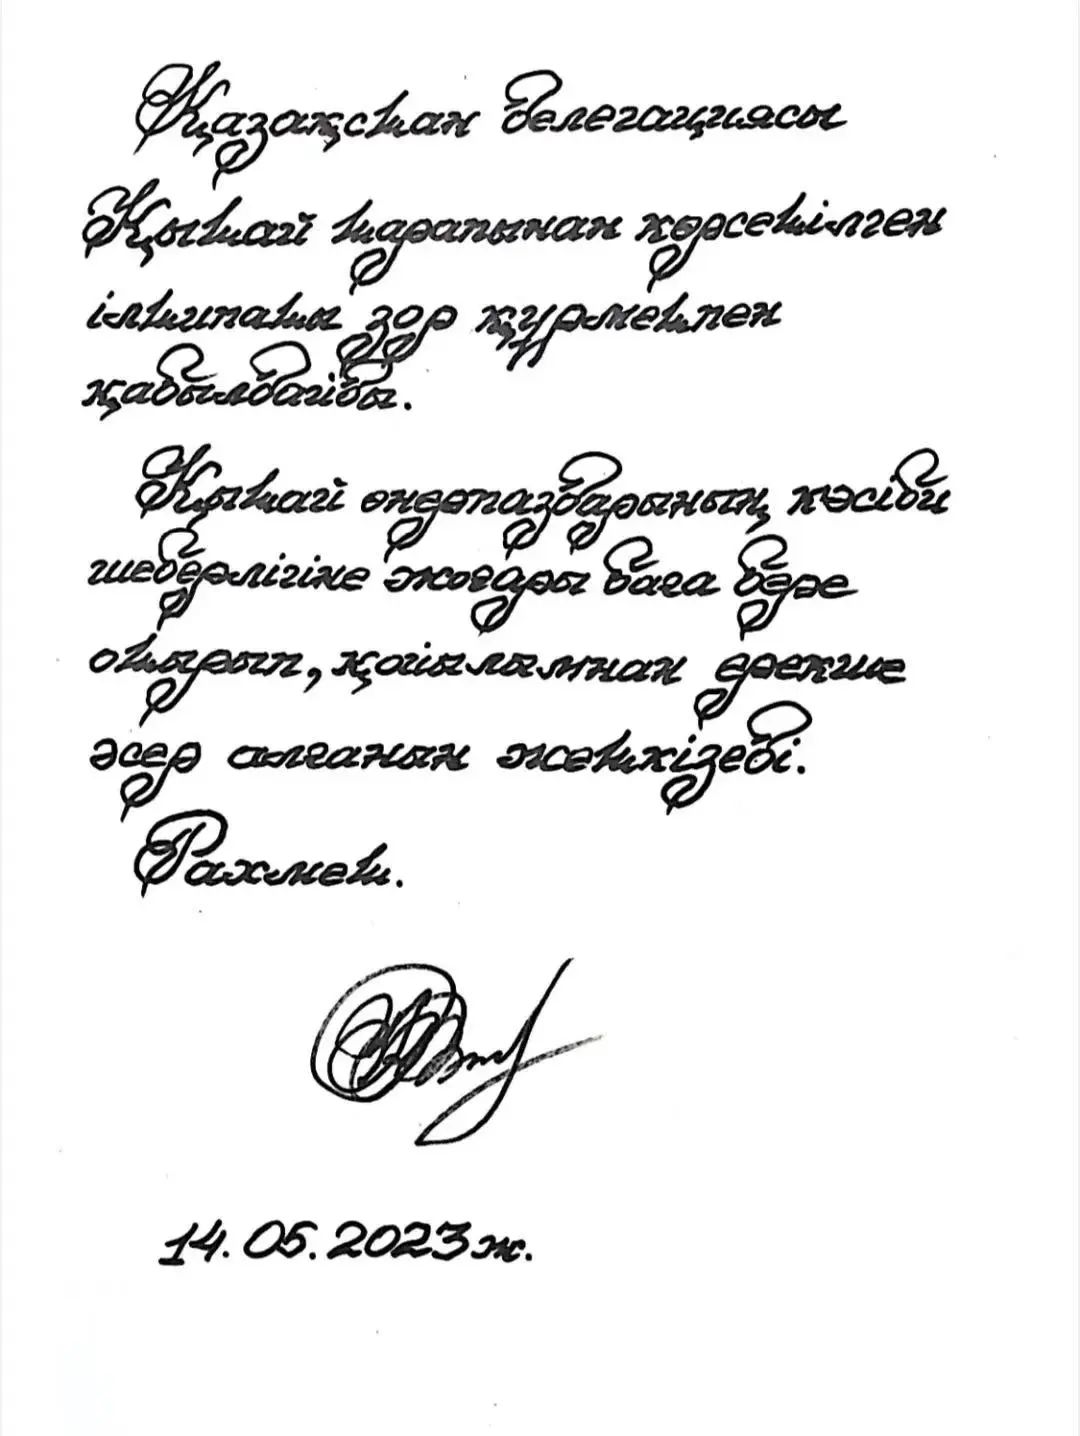 Қазақстан делегациясы
Қытай тарапынан көрсетілген
ілтипатты зор құрметпен
қабылдайды.
Қытай өнерпаздарының кәсіби
шеберлігіне жоғары баға бере
отырып, қойылымнан ерекше
әсер алғанын жеткізеді.
Рахмет.
14.05.2023 ж.